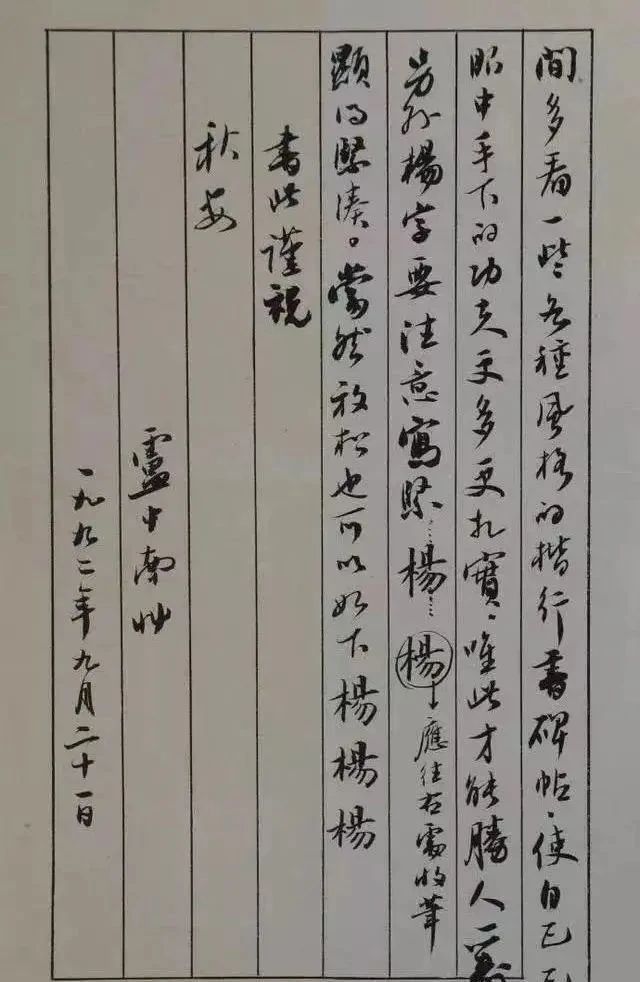 間多看一些各種風格的楷行書碑帖、使自己
眼中手下的功夫更多更扎實、唯此才能勝人一籌
另外楊字要注意寫緊……楊……楊 應往右處收筆
顯得緊湊。當然放松也可以如下楊楊楊
書此謹祝
秋安
盧中南
一九九二年九月二十一日